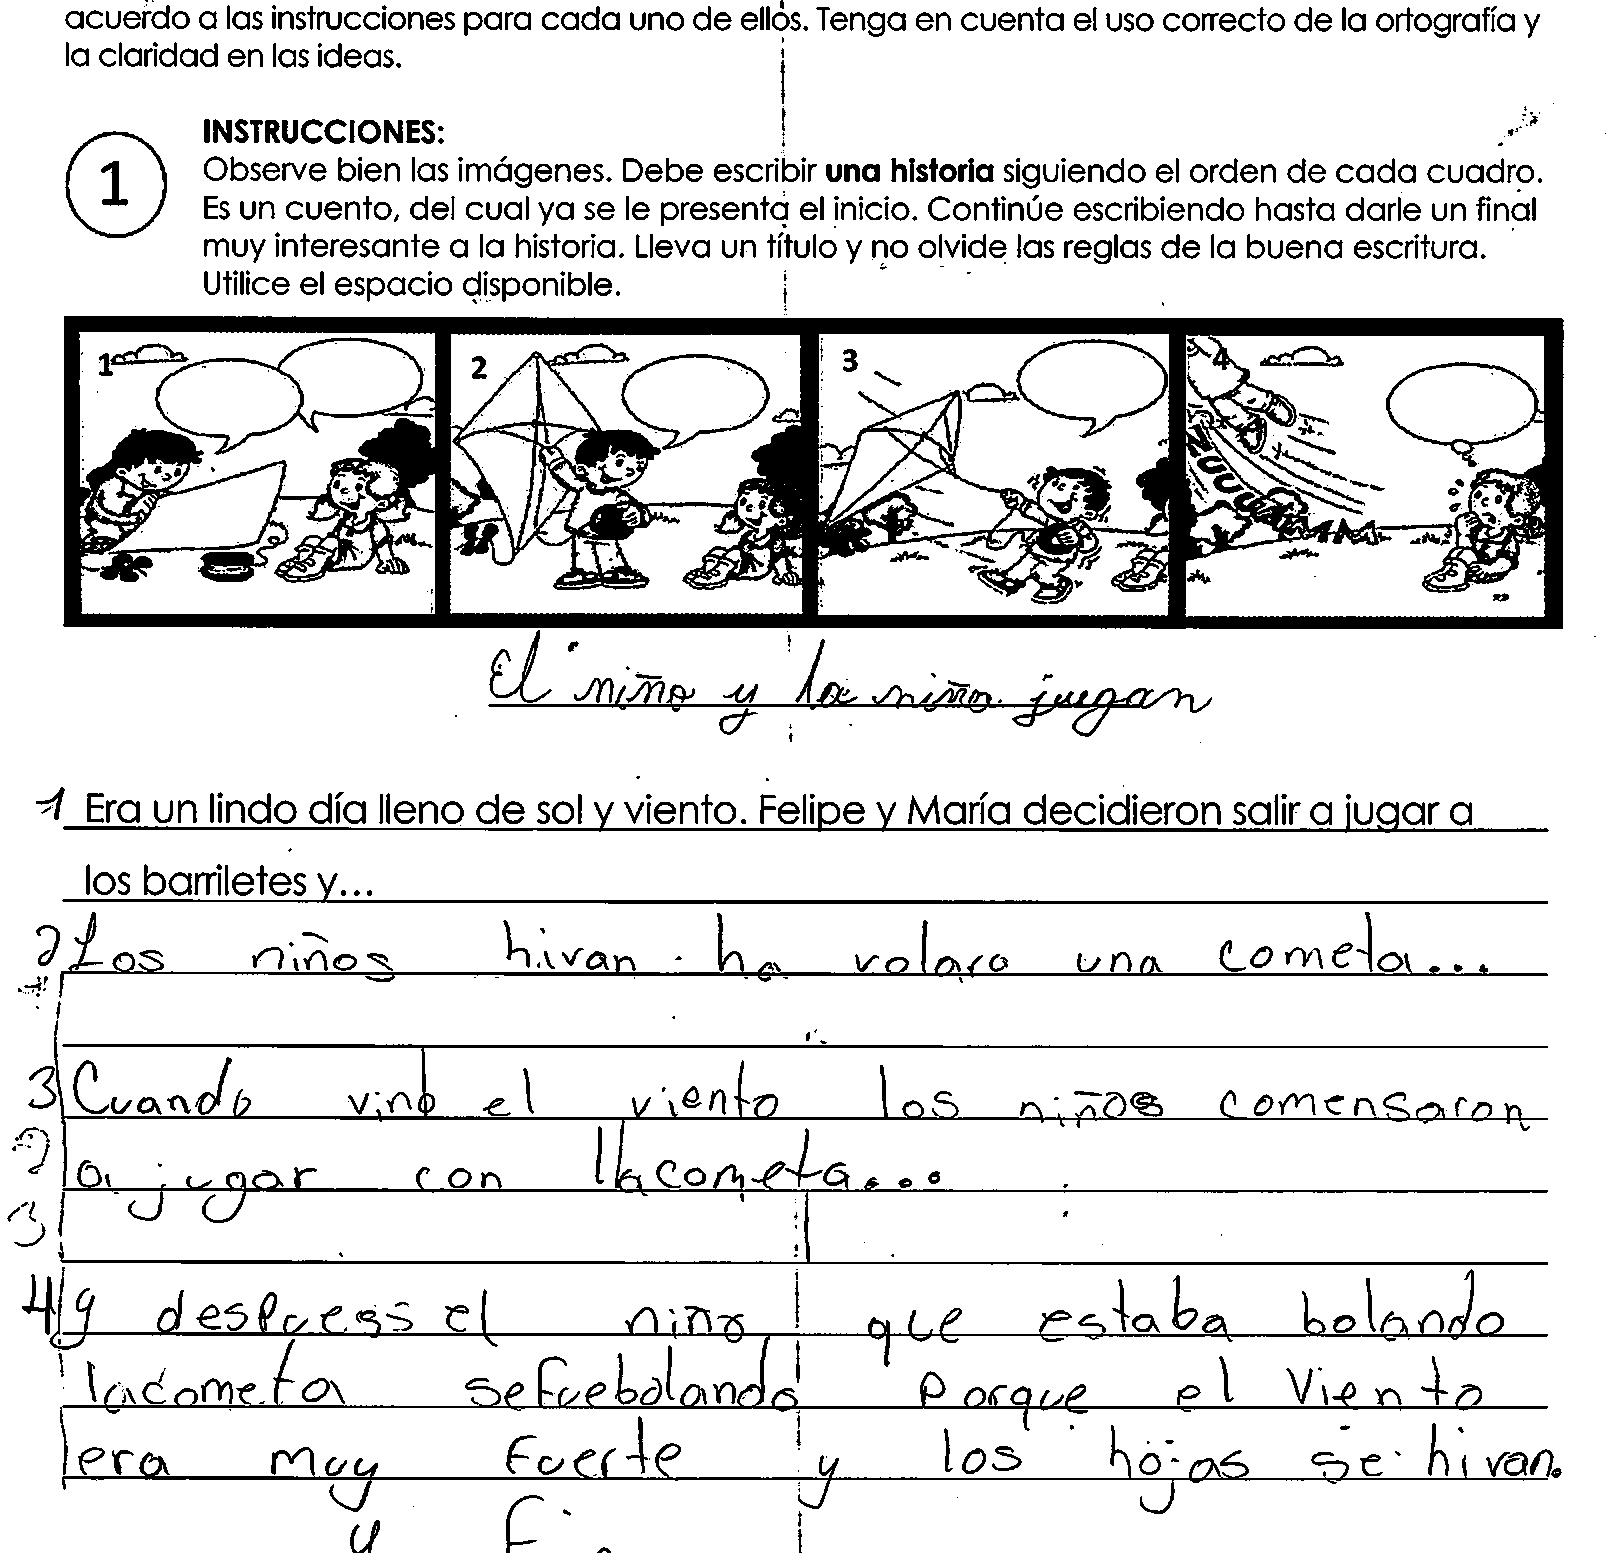 acuerdo a las instrucciones para cada uno de ellos. Tenga en cuenta el uso correcto de la ortografía y
la claridad en las ideas.
1
INSTRUCCIONES:
Observe bien las imágenes. Debe escribir una historia siguiendo el orden de cada cuadro.
Es un cuento, del cual ya se le presenta el inicio. Continúe escribiendo hasta darle un final
muy interesante a la historia. Lleva un título y no olvide las reglas de la buena escritura.
Utilice el espacio disponible.
1 2 3 4
ZUUUUMMM
El niño y la niña juegan
1 Era un lindo día lleno de sol y viento. Felipe y María decidieron salir a jugar a
los barriletes y...
2 Los niños hivan ha volara una cometa...
3 Cuando vino el viento los niños comensaron
2 a jugar con lla cometa...
3
4 y el niño que estaba bolando
lacometa sefuebolando porque el viento
era muy fuerte y los hojas se hivan.
y